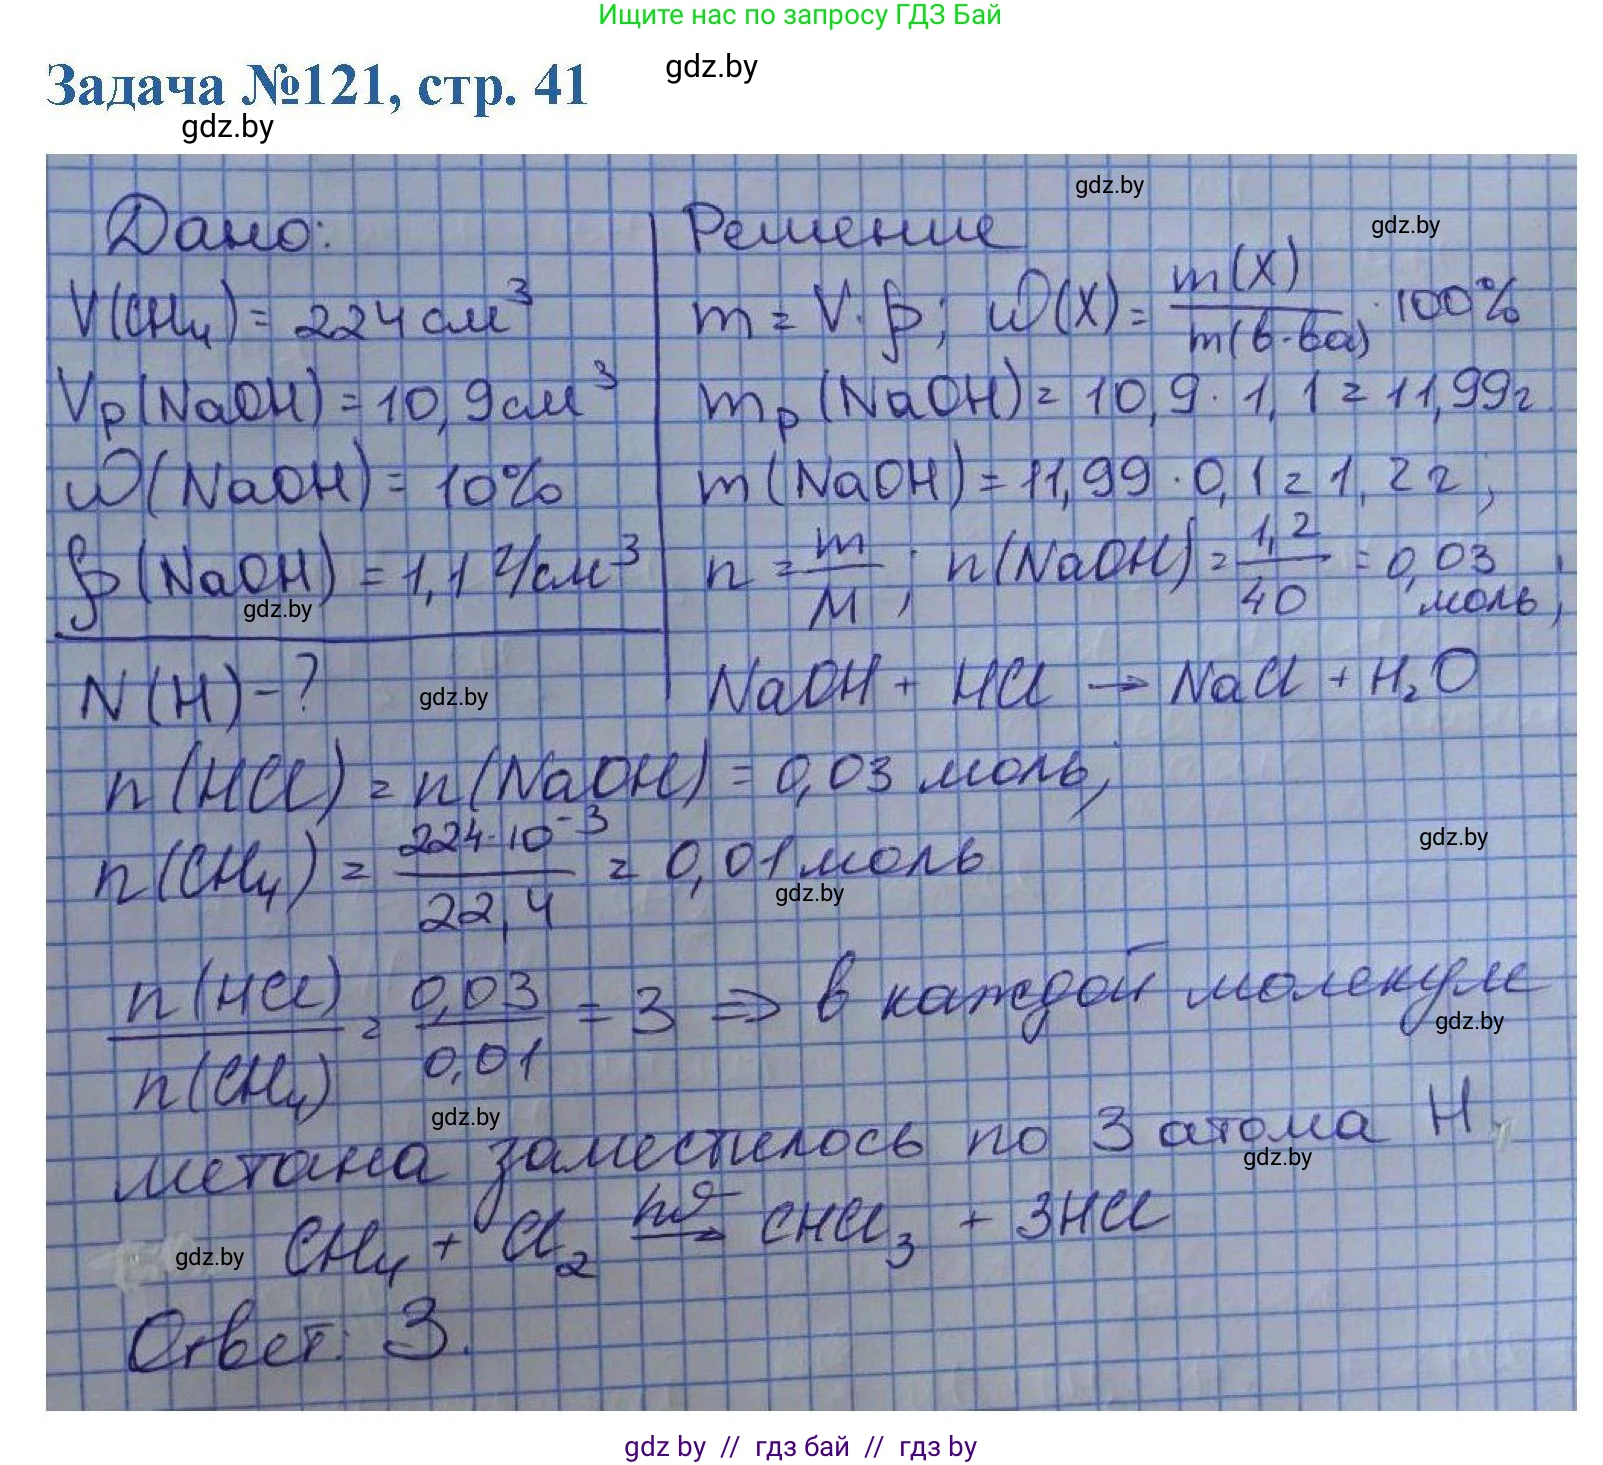 Ищите нас по запросу ГДЗ Бай
Задача №121, стр. 41
gdz.by
gdz.by
gdz.by
gdz.by
Дано:
V(CH₄) = 224 см³
Vр(NaOH) = 10,9 см³
ω(NaOH) = 10%
ρ(NaOH) = 1,1 г/см³
gdz.by
N(H) - ?
gdz.by
Решение
m = V · ρ; ω(X) = m(X) / m(в-ва) · 100%
mр(NaOH) = 10,9 · 1,1 = 11,99 г
m(NaOH) = 11,99 · 0,1 = 1,2 г;
n = m / M; n(NaOH) = 1,2 / 40 = 0,03 моль;
NaOH + HCl → NaCl + H₂O
n(HCl) = n(NaOH) = 0,03 моль;
n(CH₄) = 224 · 10⁻³ / 22,4 = 0,01 моль
gdz.by
gdz.by
n(HCl) / n(CH₄) = 0,03 / 0,01 = 3 ⇒ в каждой молекуле
gdz.by
gdz.by
метана заместилось по 3 атома H,
gdz.by
CH₄ + Cl₂ hν → CHCl₃ + 3HCl
gdz.by
Ответ: 3.
gdz by // гдз бай // гдз by